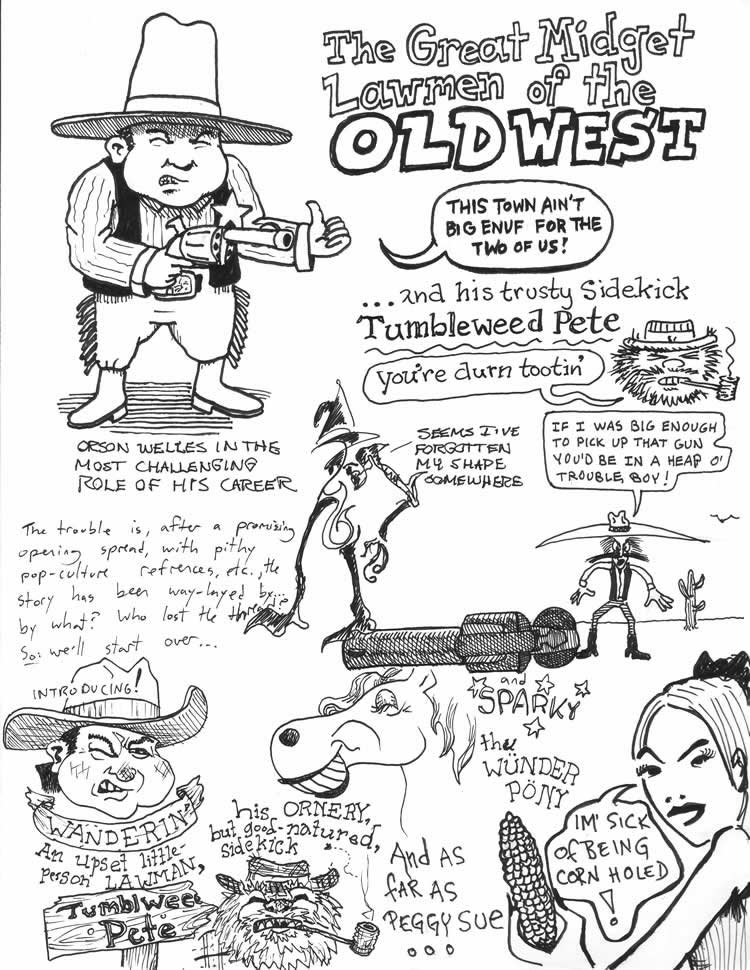 The Great Midget
Lawmen of the
OLD WEST
THIS TOWN AIN'T
BIG ENUF FOR THE
TWO OF US!
...and his trusty Sidekick
Tumbleweed Pete
you're durn tootin'
ORSON WELLES IN THE
MOST CHALLENGING
ROLE OF HIS CAREER
SEEMS I'VE
FORGOTTEN
MY SHAPE
SOMEWHERE
IF I WAS BIG ENOUGH
TO PICK UP THAT GUN
YOU'D BE IN A HEAP O'
TROUBLE, BOY!
The trouble is, after a promising
opening spread, with pithy
pop-culture refrences, etc., the
story has been way-layed by...
by what? Who lost the
So: we'll start over...
INTRODUCING!
WANDERIN'
An upset little-
person LAWMAN,
Tumblwee
Pete
his ORNERY,
but good-natured,
sidekick
and
SPARKY
the
WÜNDER
PÖNY
And AS
FAR AS
PEGGY SUE
...
IM' SICK
of BEING
CORN HOLED
!